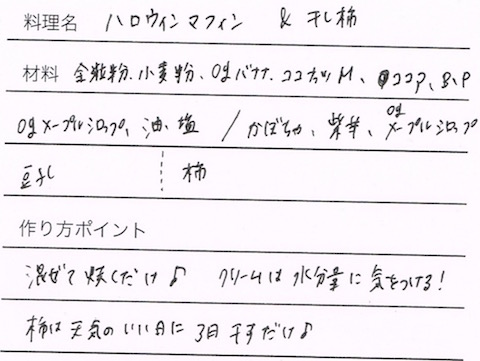 料理名 ハロウィンマフィン & 干し柿
材料 全粒粉、小麦粉、Ogバナナ、ココナッツM、ココア、B.P
Ogメープルシロップ、油、塩 / かぼちゃ、紫芋、Ogメープルシロップ
豆乳 柿
作り方ポイント
混ぜて焼くだけ♪ クリームは水分量に気をつける!
柿は天気のいい日に3日干すだけ♪